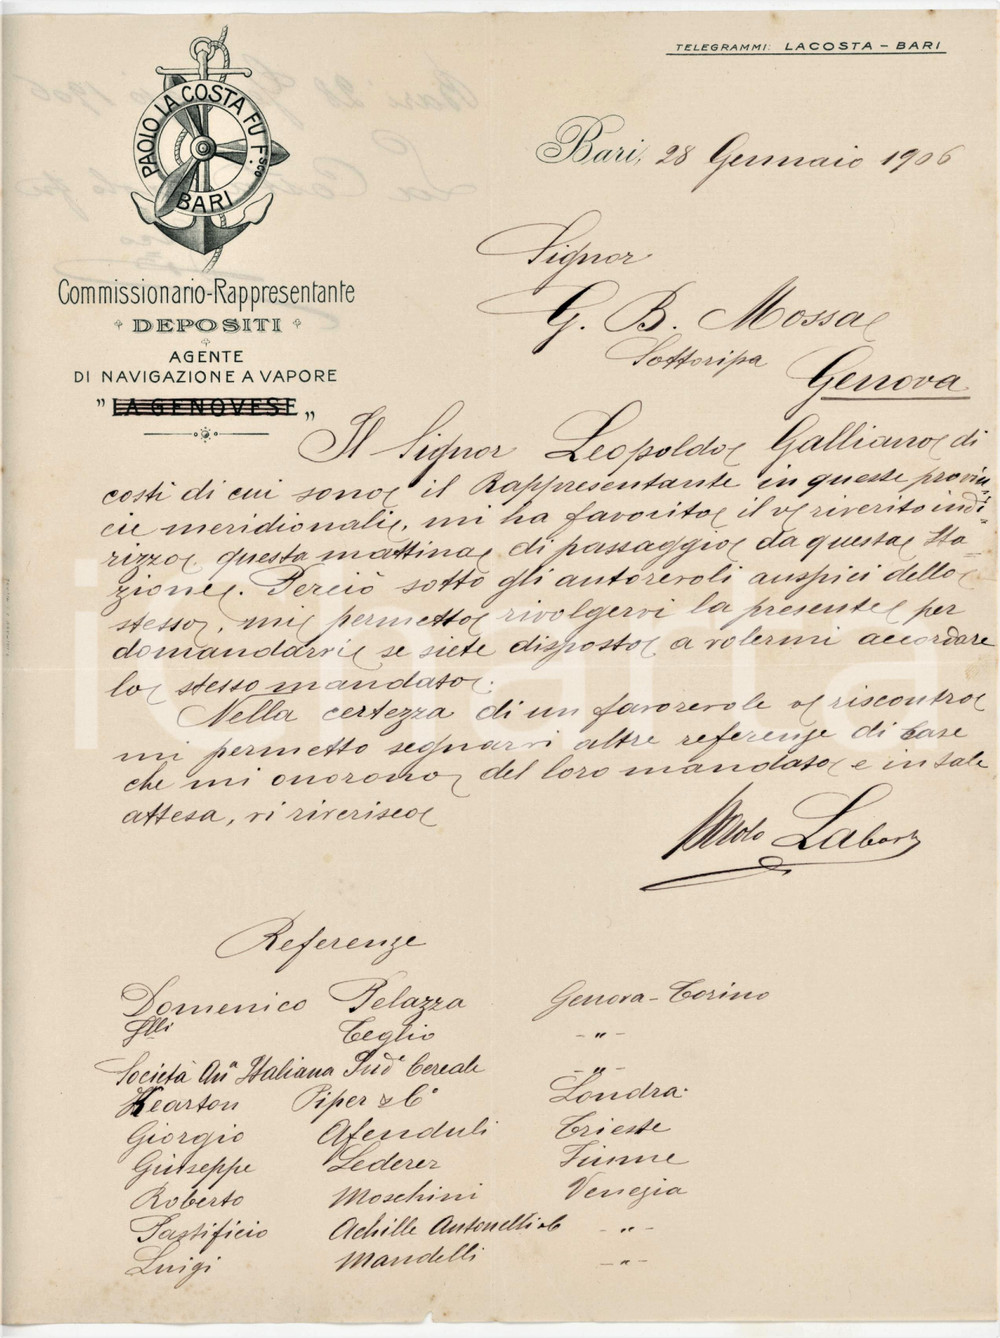 TELEGRAMMI: LACOSTA - BARI
PAOLO LA COSTA FU F.sco
BARI
Commissionario-Rappresentante
DEPOSITI
AGENTE
DI NAVIGAZIONE A VAPORE
" LA GENOVESE "
Bari, 28 Gennaio 1906
Signor
G. B. Mossa
Sottoripa
Genova
Il Signor Leopoldo Galliano di
costì di cui sono il Rappresentante in queste provin-
cie meridionali, mi ha favorito il v riverito indi-
rizzo questa mattina di passaggio da questa Sta-
zione. Perciò sotto gli autorevoli auspici dello
stesso, mi permetto rivolgervi la presente per
domandarvi se siete disposto a volermi accordare
lo stesso mandato.
Nella certezza di un favorevole v riscontro
mi permetto segnarvi altre referenze di case
che mi onorono del loro mandato e in tale
attesa, vi riverisco
Referenze
Domenico Pelazza Genova - Torino
Flli Teglio - " -
Società An.a Italiana Ind. Cereale - " -
Kearton Piper & C° Londra
Giorgio Afenduli Trieste
Giuseppe Lederer Fiume
Roberto Moschini Venezia
Pastificio Achille Antonelli & C - " -
Luigi Mandelli - " -
iCharta